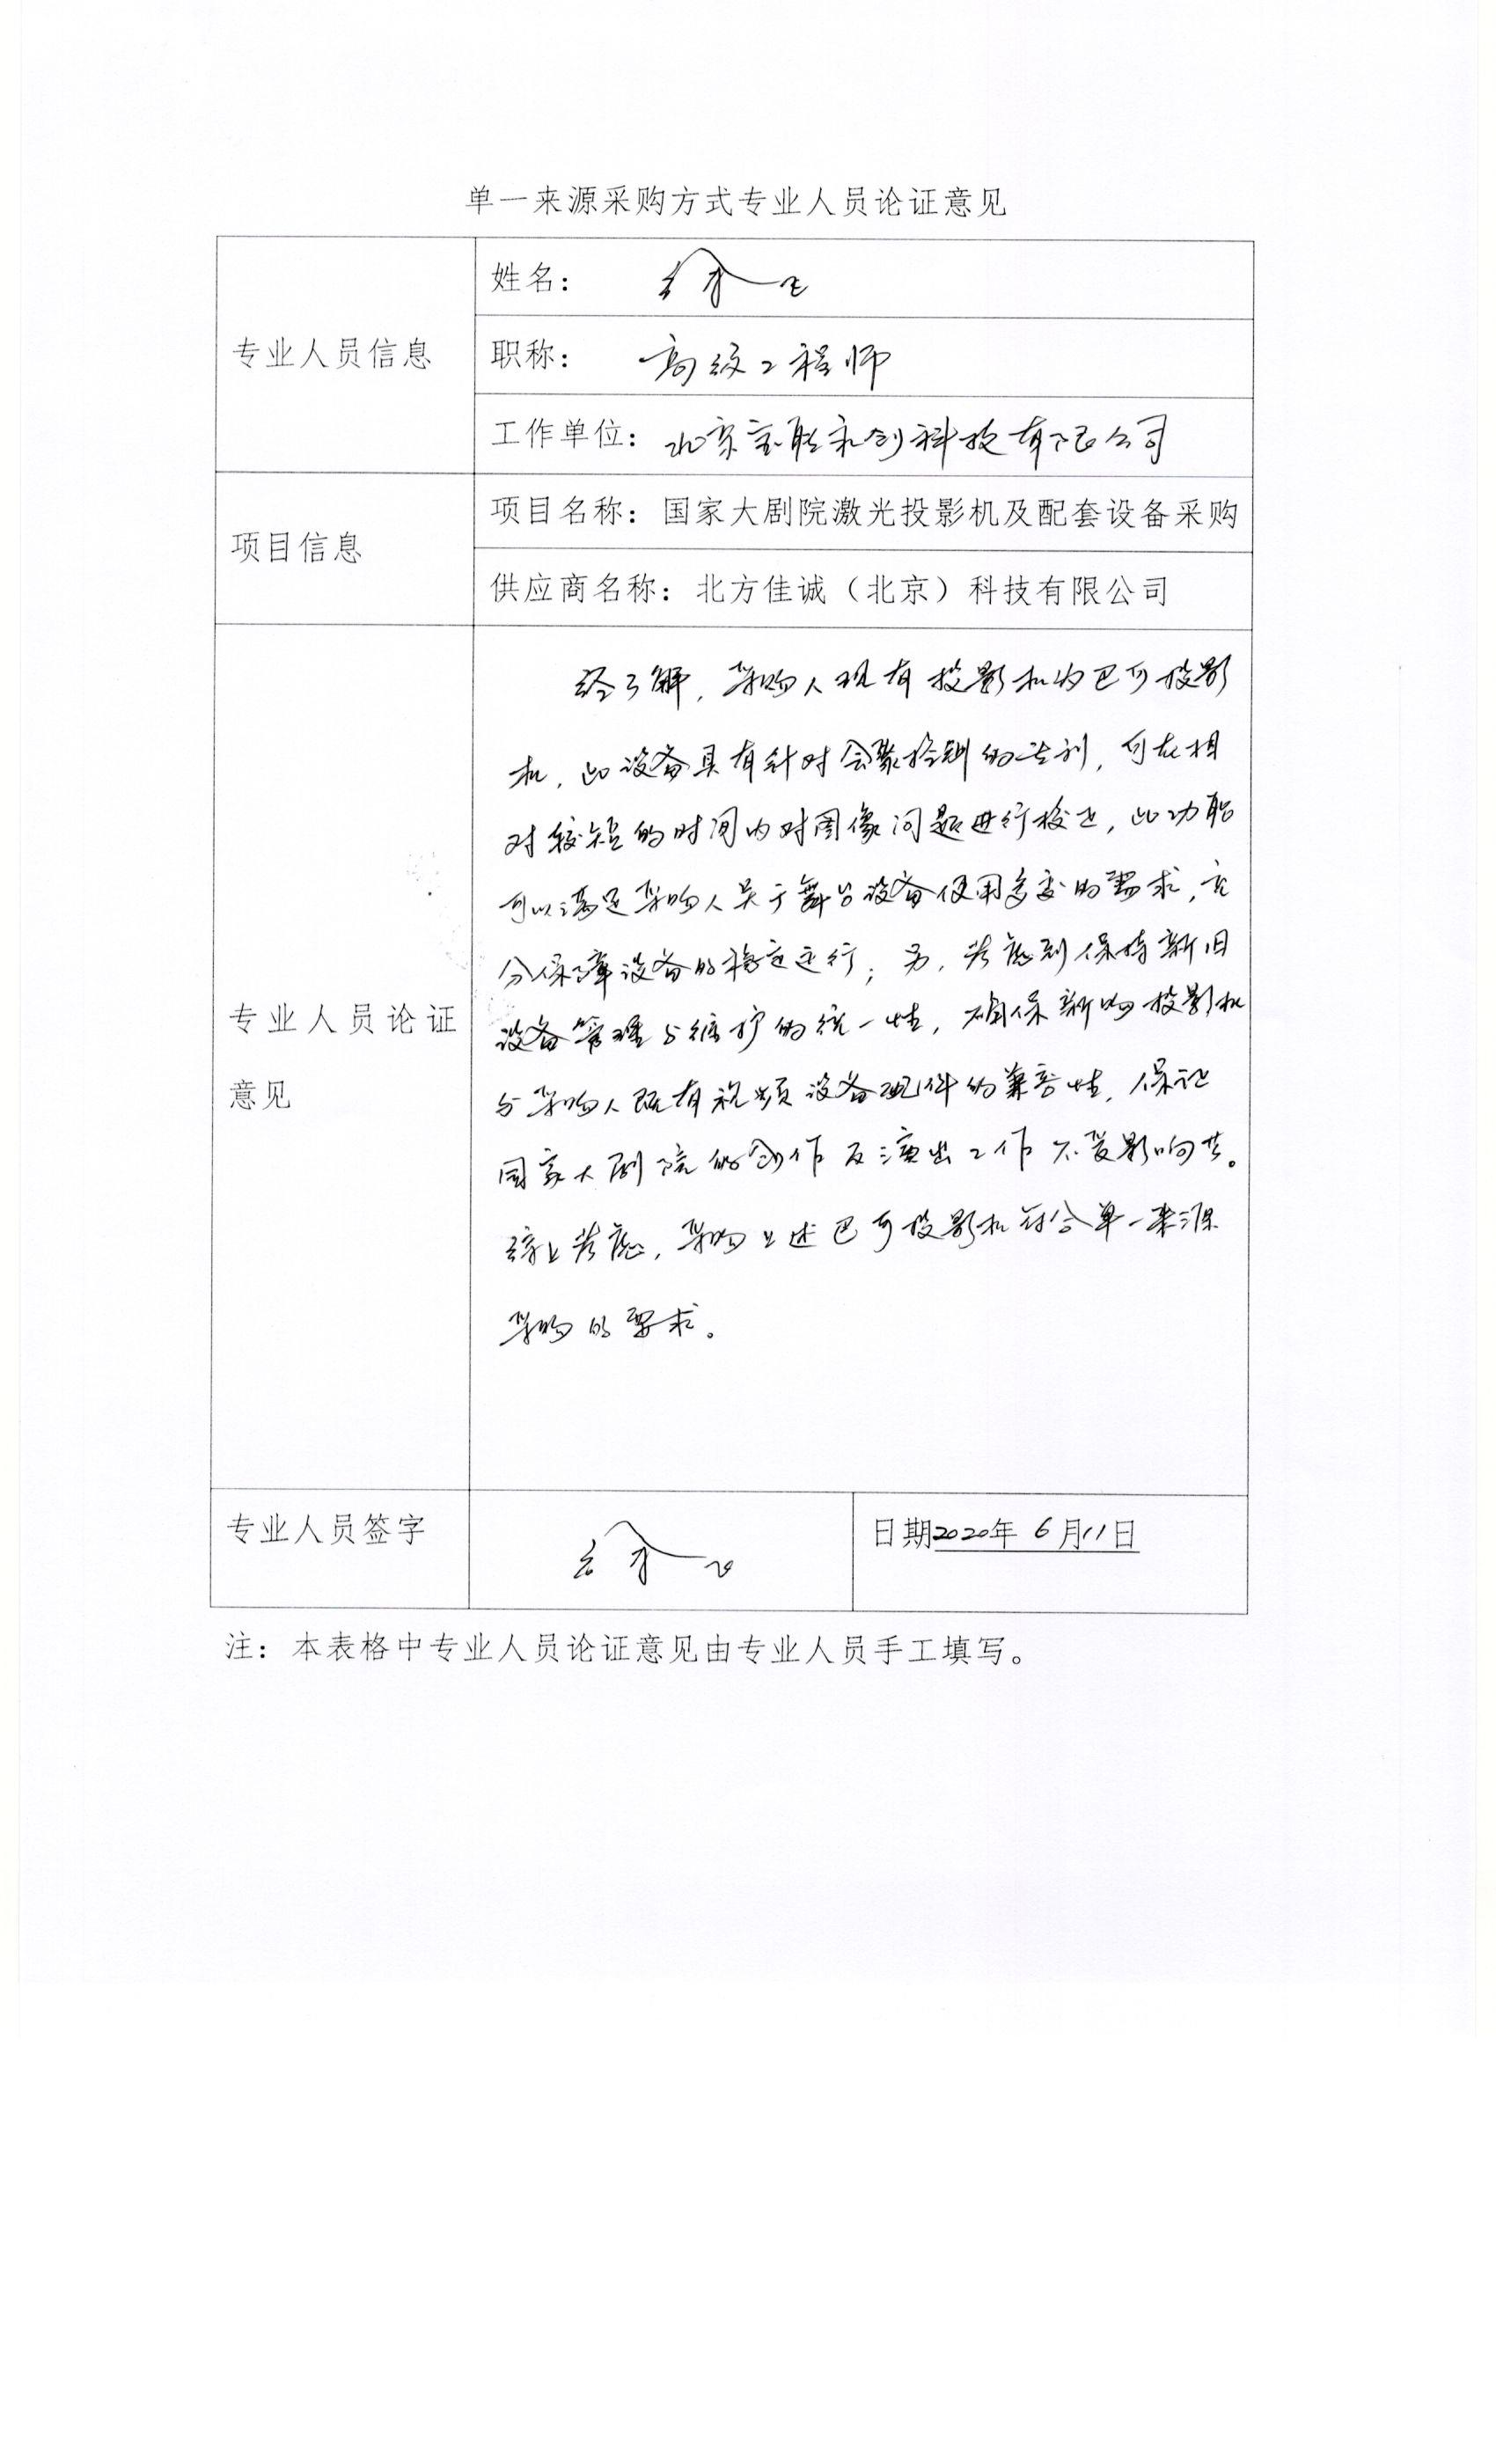 单一来源采购方式专业人员论证意见
专业人员信息
姓名：
职称： 高级工程师
工作单位：北京 科技有限公司
项目信息
项目名称：国家大剧院激光投影机及配套设备采购
供应商名称：北方佳诚（北京）科技有限公司
专业人员论证
意见
经了解，采购人现有投影机为巴可投影
机，此设备具有针对会聚控制的专利，可在相
对较短的时间内对图像问题进行校正，此功能
可以满足采购人关于舞台设备使用多变的需求，充
分保障设备的稳定运行；另，考虑到保持新旧
设备管理与维护的统一性，确保新购投影机
与采购人既有视频设备配件的兼容性，保证
国家大剧院的创作及演出工作不受影响等。
综上考虑，采购上述巴可投影机符合单一来源
采购的要求。
专业人员签字
日期2020年6月11日
注：本表格中专业人员论证意见由专业人员手工填写。